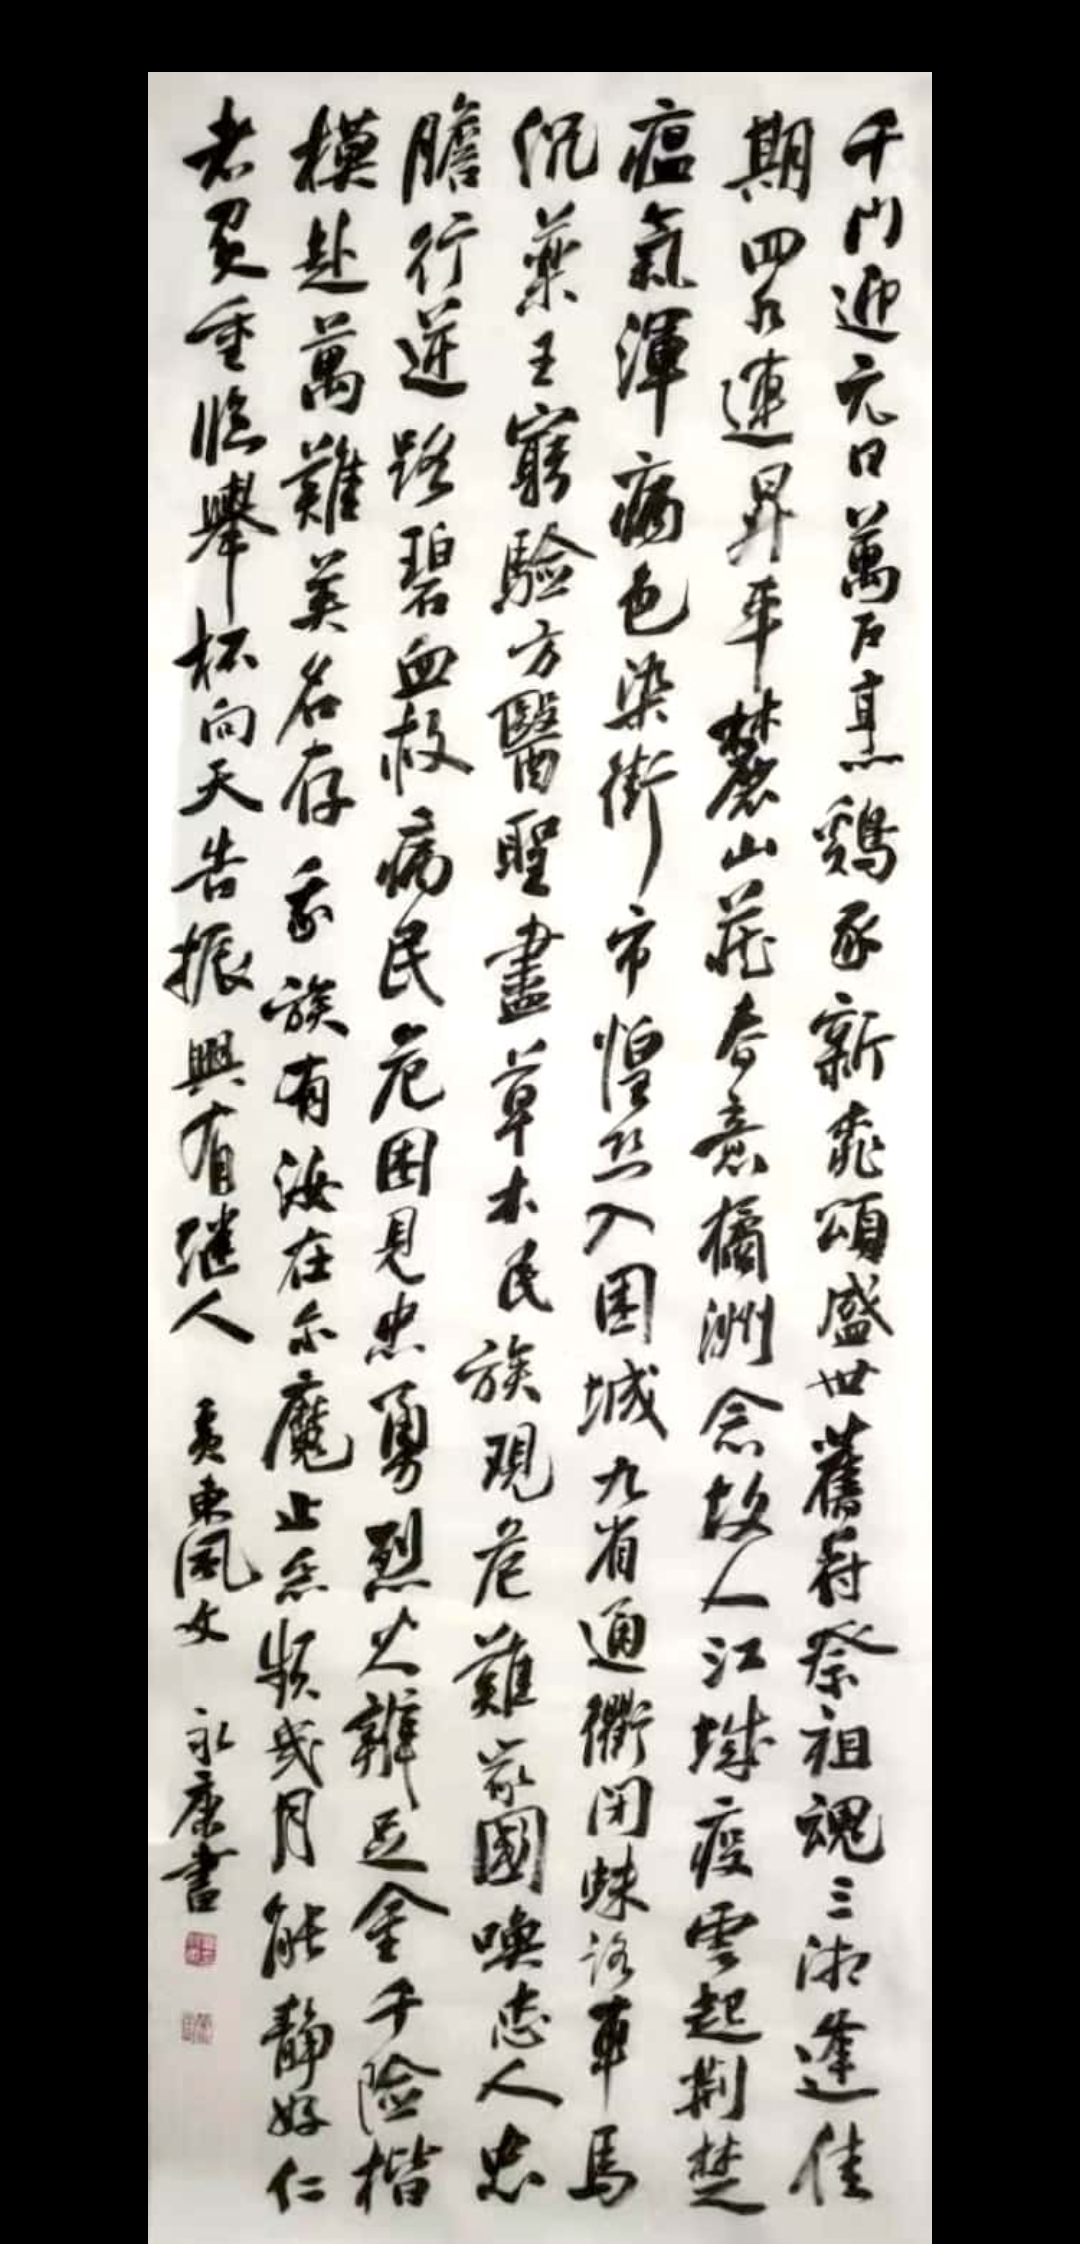 千門迎元日萬戶烹鷄豕新桃頌盛世舊符祭祖魂三湘逢佳
期四水連昇平麓山茫春意橘洲念故人江城疫雲起荆楚
瘟氣渾病色染街市惶恐入困城九省通衢閉蛛路車馬
沉藥王窮驗方醫聖盡草木民族現危難家國喚志人忠
膽行逆路碧血救病民危困見忠勇烈火辨足金千險楷
模赴萬難英名存我族有汝在尔魔止無頻歲月能靜好仁
者負重臨舉杯向天告振興有繼人 黃東風文 永康書